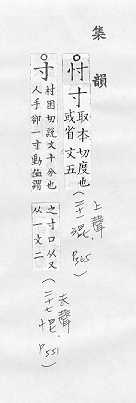 集韻
忖寸
取本切度也
或省文五
(上聲.二十一混 P365)
寸
村困切說文十分也
人手卻一寸動䘑謂
之寸口从又
从一文二
(去聲.二十七恨 P551)